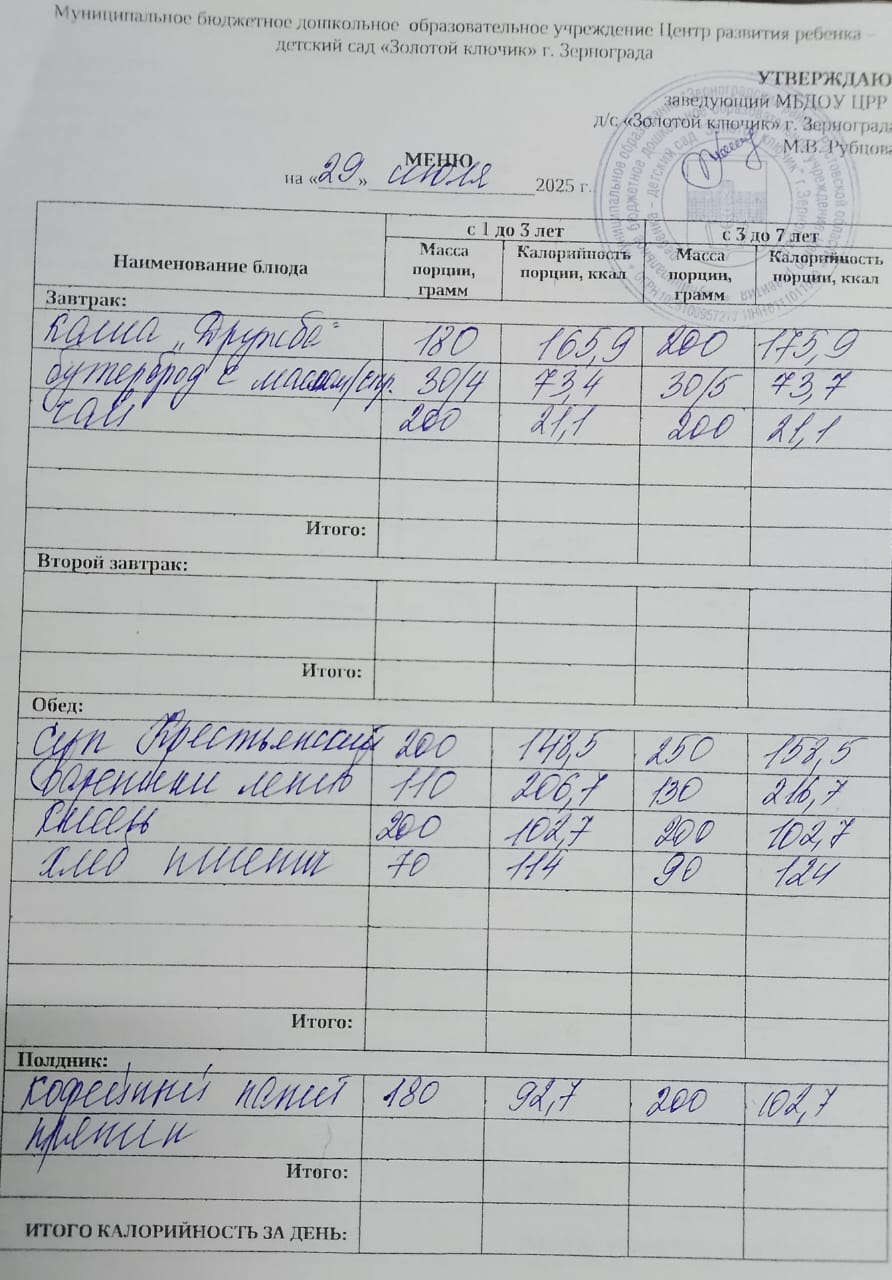 Муниципальное бюджетное дошкольное образовательное учреждение Центр развития ребенка –
детский сад «Золотой ключик» г. Зернограда
УТВЕРЖДАЮ
заведующий МБДОУ ЦРР
д/с «Золотой ключик» г. Зернограда
М.В. Рубцова
МЕНЮ
на «29» июля 2025 г.
Наименование блюда
с 1 до 3 лет
с 3 до 7 лет
Масса порции, грамм
Калорийность порции, ккал
Масса порции, грамм
Калорийность порции, ккал
Завтрак:
каша „Дружба" 180 165,9 200 175,9
бутерброд с маслом/ 30/4 73,4 30/5 73,7
чай 200 21,1 200 21,1
Итого:
Второй завтрак:
Итого:
Обед:
суп Крестьянский 200 148,5 250 158,5
вареники ленив 110 206,7 130 216,7
кисель 200 102,7 200 102,7
хлеб пшенич 70 114 90 124
Итого:
Полдник:
кофейный напит 180 92,7 200 102,7
пряник
Итого:
ИТОГО КАЛОРИЙНОСТЬ ЗА ДЕНЬ: